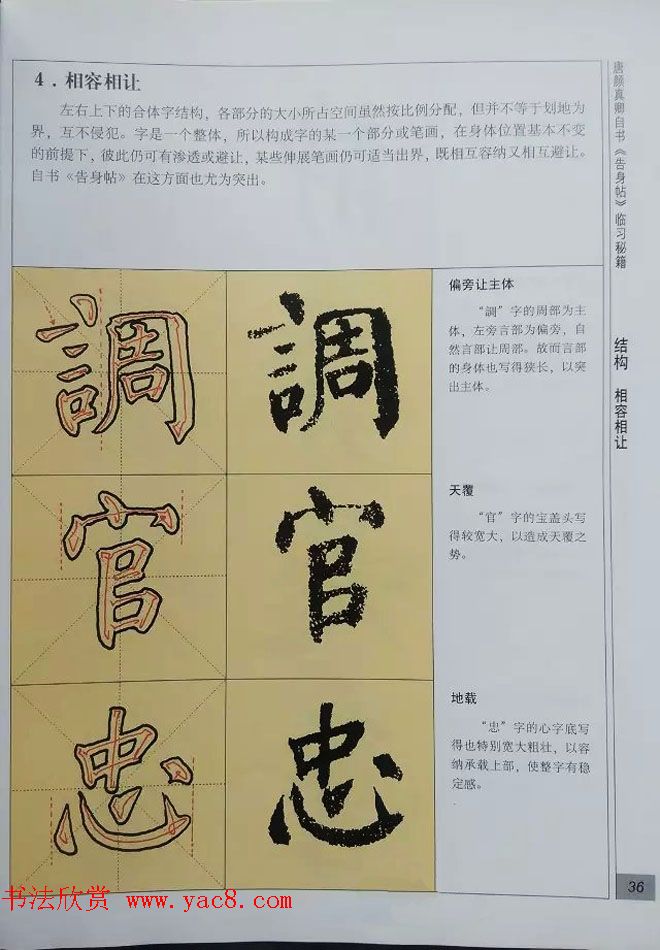 4．相容相让
左右上下的合体字结构，各部分的大小所占空间虽然按比例分配，但并不等于划地为
界，互不侵犯。字是一个整体，所以构成字的某一个部分或笔画，在身体位置基本不变
的前提下，彼此仍可有渗透或避让，某些伸展笔画仍可适当出界，既相互容纳又相互避让。
自书《告身帖》在这方面也尤为突出。
調
調
偏旁让主体
“調”字的周部为主
体，左旁言部为偏旁，自
然言部让周部。故而言部
的身体也写得狭长，以突
出主体。
官
官
天覆
“官”字的宝盖头写
得较宽大，以造成天覆之
势。
忠
忠
地载
“忠”字的心字底写
得也特别宽大粗壮，以容
纳承载上部，使整字有稳
定感。
唐颜真卿自书《告身帖》临习秘籍
结构 相容相让
36
书法欣赏 www.yac8.com